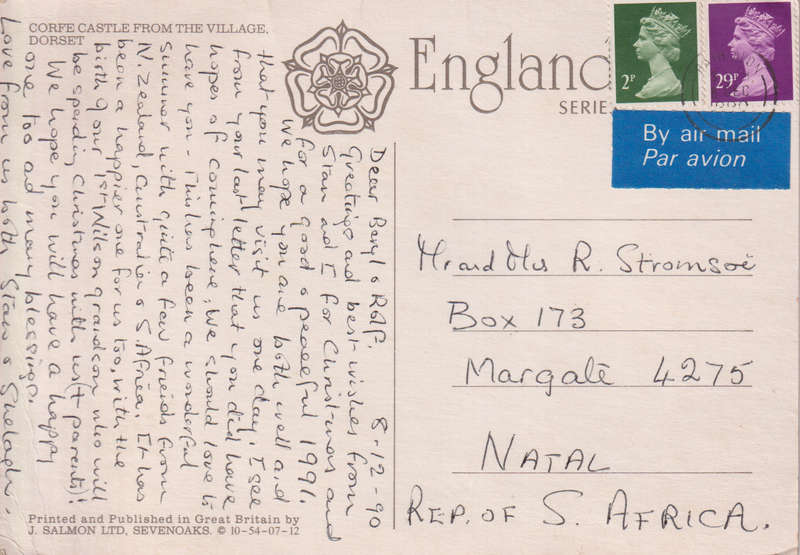 CORFE CASTLE FROM THE VILLAGE,
DORSET
England
SERIES
2P
29P
By air mail
Par avion
8-12-90
Dear Beryl & Ralf.
Greetings and best wishes from
Stan and I for Christmas and
for a good & peaceful 1991.
We hope you are both well and
that you may visit us one day. I see
from your last letter that you did have
hopes of coming here. We should love to
have you - This has been a wonderful
Summer with quite a few friends from
N. Zealand, Australia & S. Africa. It has
been a happier one for us too, with the
birth of our 1st Wilson grandson who will
be spending Christmas with us (+ parents)!
We hope you will have a happy
one too and many blessings.
Love from us both, Stan & Shelagh.
Mr and Mrs R. Stromsoe
Box 173
Margate 4275
NATAL
REP. OF S. AFRICA.
Printed and Published in Great Britain by
J. SALMON LTD, SEVENOAKS. © 10-54-07-12